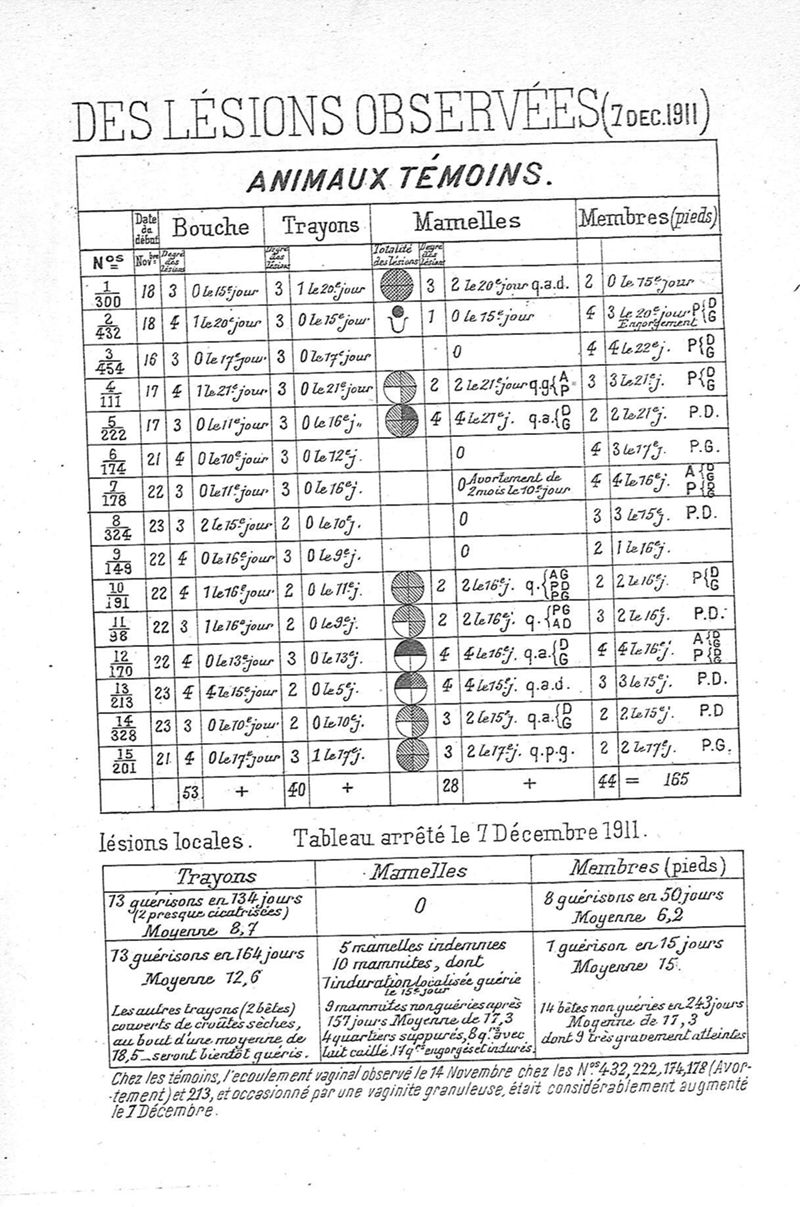 DES LÉSIONS OBSERVÉES (7 DEC. 1911)
ANIMAUX TÉMOINS.
Nos Date du début Novbre Bouche Degré des lésions Trayons Degré des lésions Mamelles Totalité des lésions Degré des lésions Membres (pieds)
1/300 18 3 0 le 15e jour 3 1 le 20e jour 3 2 le 20e jour q.a.d. 2 0 le 15e jour
2/432 18 4 1 le 20e jour 3 0 le 15e jour 1 0 le 15e jour 4 3 le 20e jour P{D G
Engorgement
3/454 16 3 0 le 17e jour 3 0 le 17e jour 0 4 4 le 22e j. P{D G
4/111 17 4 1 le 21e jour 3 0 le 21e jour 2 2 le 21e jour q.g{A P 3 3 le 21e j. P{D G
5/222 17 3 0 le 11e jour 3 0 le 16e j. 4 4 le 21e j. q.a.{D G 2 2 le 21e j. P.D.
6/174 21 4 0 le 10e jour 3 0 le 12e j. 0 4 3 le 17e j. P.G.
7/178 22 3 0 le 11e jour 3 0 le 16e j. 0 Avortement de 4 4 le 16e j. A{D G P{D G
2 mois le 10e jour
8/324 23 3 2 le 15e jour 2 0 le 10e j. 0 3 3 le 15e j. P.D.
9/149 22 4 0 le 16e jour 3 0 le 9e j. 0 2 1 le 16e j.
10/191 22 4 1 le 16e jour 2 0 le 11e j. 2 2 le 16e j. q.{AG PD PG 2 2 le 16e j. P{D G
11/98 22 3 1 le 16e jour 2 0 le 9e j. 2 2 le 16e j. q.{PG AD 3 2 le 16e j. P.D.
12/170 22 4 0 le 13e jour 3 0 le 13e j. 4 4 le 16e j. q.a.{D G 4 4 le 16e j. A{D G P{D G
13/213 23 4 4 le 15e jour 2 0 le 5e j. 4 4 le 15e j. q.a.d. 3 3 le 15e j. P.D.
14/328 23 3 0 le 10e jour 2 0 le 10e j. 3 2 le 15e j. q.a.{D G 2 2 le 15e j. P.D
15/201 21 4 0 le 17e jour 3 1 le 17e j. 3 2 le 17e j. q.p.g. 2 2 le 17e j. P.G.
53 + 40 + 28 + 44 = 165
lésions locales. Tableau arrêté le 7 Décembre 1911.
Trayons Mamelles Membres (pieds)
13 guérisons en 134 jours
(2 presque cicatrisées)
Moyenne 8,7
0
8 guérisons en 50 jours
Moyenne 6,2
13 guérisons en 164 jours
Moyenne 12,6
Les autres trayons (2 bêtes)
couverts de croûtes sèches,
au bout d'une moyenne de
18,5 _ seront bientôt guéris.
5 mamelles indemnes
10 mammites, dont
1 induration localisée guérie
le 15e jour
9 mammites non guéries après
157 jours Moyenne de 17,3
4 quartiers suppurés, 8 qrs avec
lait caillé. 17 qrs engorgés et indurés.
1 guérison en 15 jours
Moyenne 15.
14 bêtes non guéries en 243 jours
Moyenne de 17,3
dont 9 très gravement atteintes
Chez les témoins, l'écoulement vaginal observé le 14 Novembre chez les Nos 432, 222, 174, 178 (Avor-
-tement) et 213, et occasionné par une vaginite granuleuse, était considérablement augmenté
le 7 Décembre.